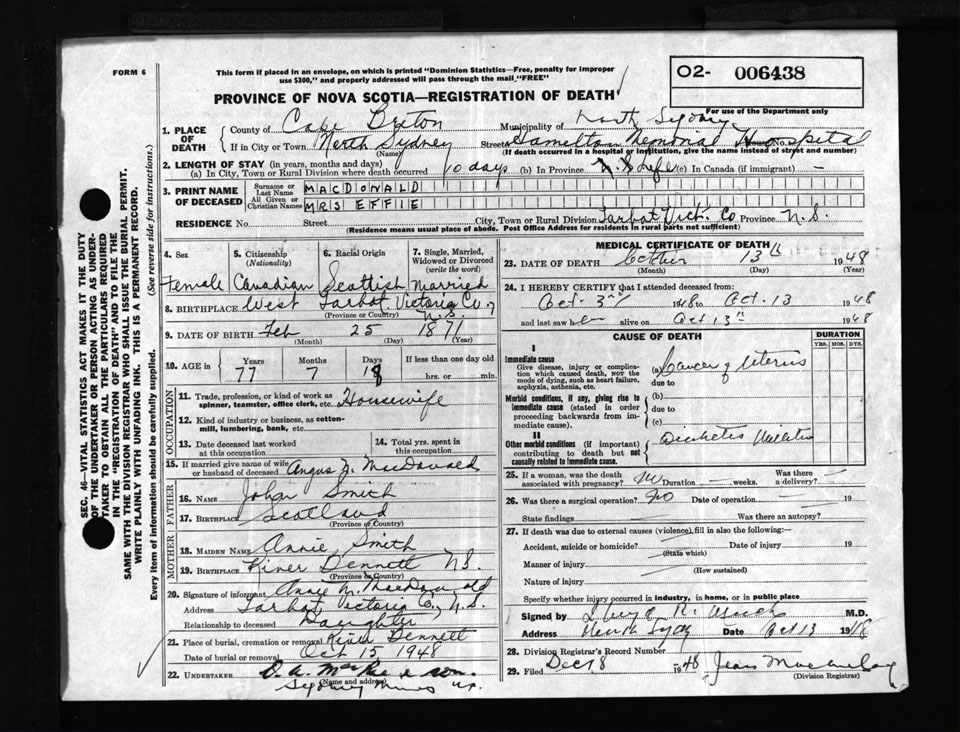 FORM 6
This form if placed in an envelope, on which is printed "Dominion Statistics—Free, penalty for improper
use $300," and properly addressed will pass through the mail, "FREE"
O2- 006438
For use of the Department only
PROVINCE OF NOVA SCOTIA—REGISTRATION OF DEATH
1. PLACE OF DEATH
County of Cape Breton Municipality of North Sydney
If in City or Town North Sydney Street Hamilton Memorial House No. Hospital
(Name) (If death occurred in a hospital or institution, give the name instead of street and number)
2. LENGTH OF STAY (in years, months and days)
(a) In City, Town or Rural Division where death occurred 10 days (b) In Province Life (c) In Canada (if immigrant) —
3. PRINT NAME OF DECEASED
Surname or Last Name MACDONALD
All Given or Christian Names MRS EFFIE
RESIDENCE No. Street City, Town or Rural Division Tarbat Vict. Co Province N.S.
(Residence means usual place of abode. Post Office Address for residents in rural parts not sufficient)
SEC. 46—VITAL STATISTICS ACT MAKES IT THE DUTY
OF THE UNDERTAKER OR PERSON ACTING AS UNDER-
TAKER TO OBTAIN ALL THE PARTICULARS REQUIRED
IN THE "REGISTRATION OF DEATH" AND TO FILE THE
SAME WITH THE DIVISION REGISTRAR WHO SHALL ISSUE THE BURIAL PERMIT.
WRITE PLAINLY WITH UNFADING INK. THIS IS A PERMANENT RECORD.
Every item of information should be carefully supplied. (See reverse side for instructions.)
4. Sex 5. Citizenship (Nationality) 6. Racial Origin 7. Single, Married, Widowed or Divorced (write the word)
Female Canadian Scottish Married
8. BIRTHPLACE West Tarbat Victoria Co., N.S.
(Province or Country)
9. DATE OF BIRTH Feb 25 1871
(Month) (Day) (Year)
10. AGE in Years Months Days If less than one day old
77 7 18 hrs. or min.
OCCUPATION
11. Trade, profession, or kind of work as
spinner, teamster, office clerk, etc. Housewife
12. Kind of industry or business, as cotton-
mill, lumbering, bank, etc.
13. Date deceased last worked at this occupation
14. Total yrs. spent in this occupation
15. If married give name of wife or husband of deceased Angus MacDonald
FATHER
16. NAME John Smith
17. BIRTHPLACE Scotland
(Province or Country)
MOTHER
18. MAIDEN NAME Annie Smith
19. BIRTHPLACE River Dennett N.S.
(Province or Country)
20. Signature of informant Annie M. MacDonald
Address Tarbat Victoria Co., N.S.
Relationship to deceased Daughter
21. Place of burial, cremation or removal River Dennett
Date of burial or removal Oct 15 1948
22. UNDERTAKER D. A. & son.
(Name and address)
Sydney Mines N.S.
MEDICAL CERTIFICATE OF DEATH
23. DATE OF DEATH October 13th 1948
(Month) (Day) (Year)
24. I HEREBY CERTIFY that I attended deceased from:
Oct. 3rd 1948 to Oct. 13 1948
and last saw her alive on Oct 13th 1948
CAUSE OF DEATH DURATION
YRS. MOS. DYS.
I
Immediate cause
Give disease, injury or complica-
tion which caused death, NOT the
mode of dying, such as heart failure,
asphyxia, asthenia, etc.
(a) Cancer of Uterus
due to
Morbid conditions, if any, giving rise to
immediate cause (stated in order
proceeding backwards from im-
mediate cause).
(b)
due to
(c)
II
Other morbid conditions (if important)
contributing to death but not
causally related to immediate cause.
Diabetes Mellitus
25. If a woman, was the death associated with pregnancy? No Duration — weeks. Was there a delivery? —
26. Was there a surgical operation? No Date of operation — 19
State findings Was there an autopsy?
27. If death was due to external causes (violence) fill in also the following:—
Accident, suicide or homicide? Date of injury 19
(State which)
Manner of injury
(How sustained)
Nature of injury
Specify whether injury occurred in industry, in home, or in public place
Signed by M.D.
Address North Syd Date Oct 13 1948
28. Division Registrar's Record Number
29. Filed Dec 18 1948 Jean
(Division Registrar)